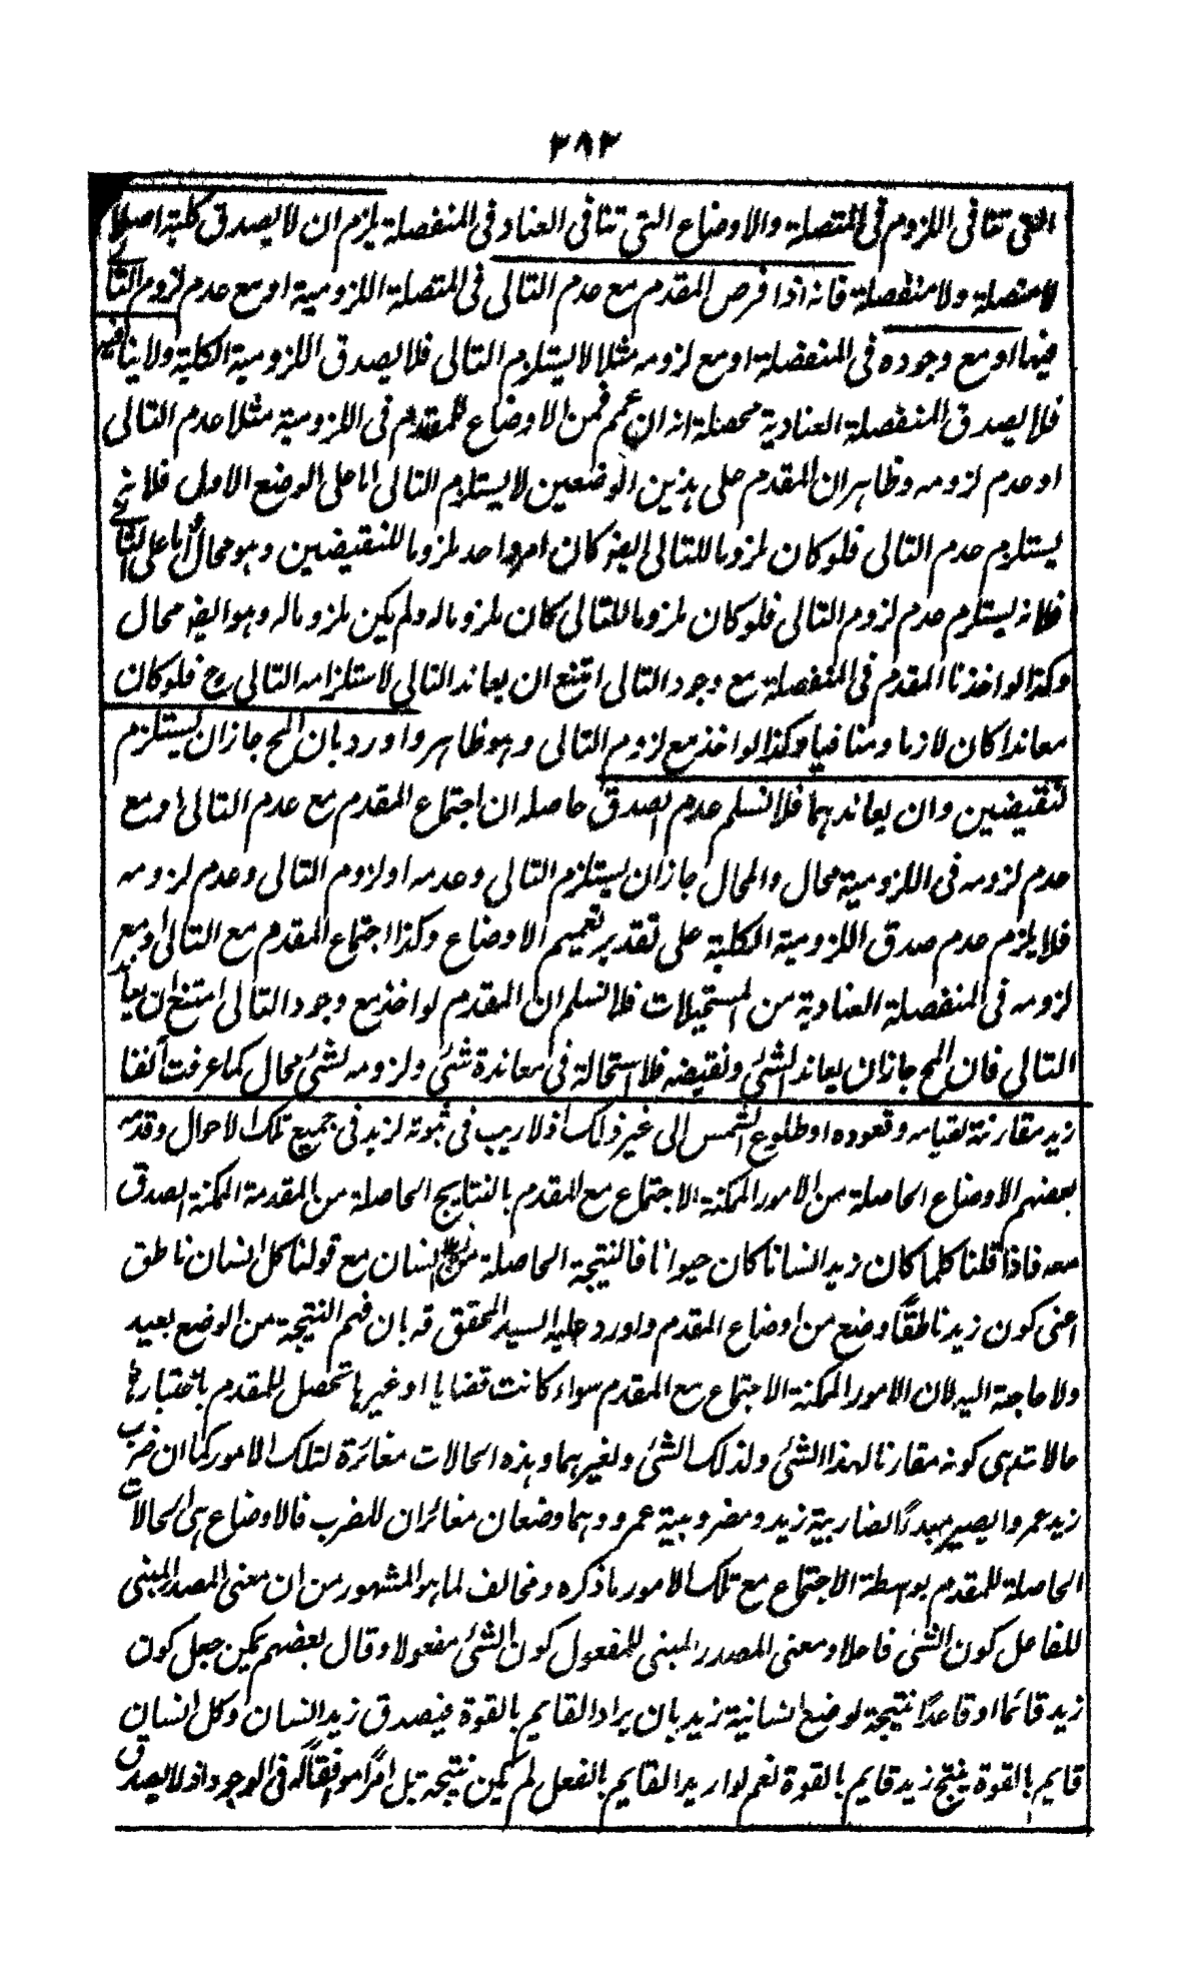 ٣٨٣
التى تنافى اللزوم فى المتصلة والاوضاع التى تنافى العناد فى المنفصلة يلزم ان لا يصدق كلية اصلا
لا متصلة ولا منفصلة فانه اذا فرض المقدم مع عدم التالى فى المتصلة اللزومية او مع عدم لزوم التالى
فيها او مع وجوده فى المنفصلة او مع لزومه مثلا لا يستلزم التالى فلا يصدق اللزومية الكلية ولا ينافيه
فلا يصدق المنفصلة العنادية محصلة انه ان عمم فمن الاوضاع للمقدم فى اللزومية مثلا عدم التالى
او عدم لزومه وظاهر ان المقدم على هذين الوضعين لا يستلزم التالى اما على الوضع الاول فلانه ح
يستلزم عدم التالى فلو كان ملزوما للتالى ايضو كان امر واحد ملزوما للنقيضين وهو محال واما على الثانى
فلانه يستلزم عدم لزوم التالى فلو كان ملزوما للتالى كان ملزوما له ولم يكن ملزوما له وهو ايضو محال
وكذا لو اخذنا المقدم فى المنفصلة مع وجود التالى امتنع ان يعاند التالى لاستلزامه التالى ح فلو كان
معاندا كان لازما ومنافيا وكذا لو اخذ مع لزوم التالى وهو ظاهر واورد بان المح جاز ان يستلزم
لنقيضين وان يعاندهما فلا نسلم عدم الصدق حاصله ان اجتماع المقدم مع عدم التالى او مع
عدم لزومه فى اللزومية محال والمحال جاز ان يستلزم التالى وعدمه او لزوم التالى وعدم لزومه
فلا يلزم عدم صدق اللزومية الكلية على تقدير تعميم الاوضاع وكذا اجتماع المقدم مع التالى او مع
لزومه فى المنفصلة العنادية من المستحيلات فلا نسلم ان المقدم لو اخذ مع وجود التالى امتنع ان يعاند
التالى فان المح جاز ان يعاند الشئ ونقيضه فلا استحالة فى معاندة شئ ولزومه لشئ محال كما عرفت آنفا
زيد مقارنة لقيامه وقعوده او طلوع الشمس الى غير ذلك اذ لا ريب فى ثبوته لزيد فى جميع تلك الاحوال وقدمه
بعضهم الاوضاع الحاصلة من الامور الممكنة الاجتماع مع المقدم بالنتايج الحاصلة من المقدمة الممكنة الصدق
معه فاذا قلنا كلما كان زيد انسانا كان حيوانا فالنتيجة الحاصلة من انسان مع قولنا كل انسان ناطق
اعنى كون زيد ناطقًا وضع من اوضاع المقدم واورد عليه السيد المحقق قه بان فهم النتيجة من الوضع بعيد
ولا حاجة اليه لان الامور الممكنة الاجتماع مع المقدم سواء كانت قضايا او غيرها تحصل للمقدم باعتبارها
حالات هى كونه مقارنا لهذا الشئ ولذلك الشئ ولغيرهما وهذه الحالات مغائرة لتلك الامور كما ان ضرب
زيد عمروا يصير مبدءًا لضاربية زيد ومضروبية عمرو وهما وضعان مغائران للضرب فالاوضاع هى الحالات
الحاصلة للمقدم بواسطة الاجتماع مع تلك الامور ما ذكره ومخالف لما هو المشهور من ان معنى المصدر المبنى
للفاعل كون الشئ فاعلا ومعنى المصدر المبنى للمفعول كون الشئ مفعولا وقال بعضهم يمكن جعل كون
زيد قائما او قاعدًا نتيجة لوضع انسانية زيد بان يراد القايم بالقوة فيصدق زيد انسان وكل انسان
قايم بالقوة ينتج زيد قايم بالقوة نعم لو اريد القايم بالفعل لم يكن نتيجة بل امرًا موافقًا له فى الوجود اذ لا يصدق